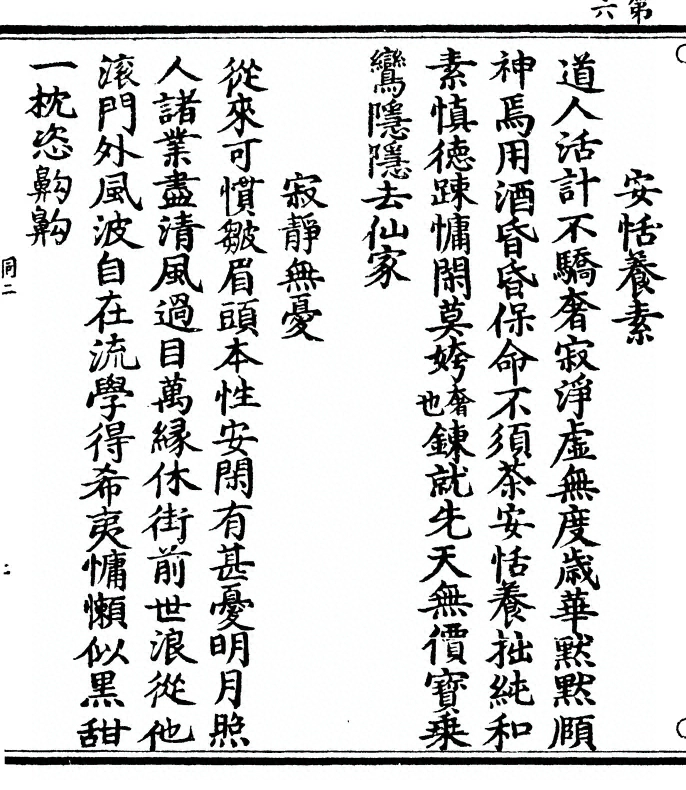 第六
安恬養素
道人活計不驕奢寂淨虛無度歳華默默頤
神焉用酒昏昏保命不須茶安恬養拙純和
素慎德踈慵閑莫姱奢也鍊就先天無價寶乗
鸞隱隱去仙家
寂靜無憂
從來可慣皺眉頭本性安閑有甚憂明月照
人諸業盡清風過目萬緣休街前世浪從他
滚門外風波自在流學得希夷慵懶似黒甜
一枕恣齁齁
同二
二